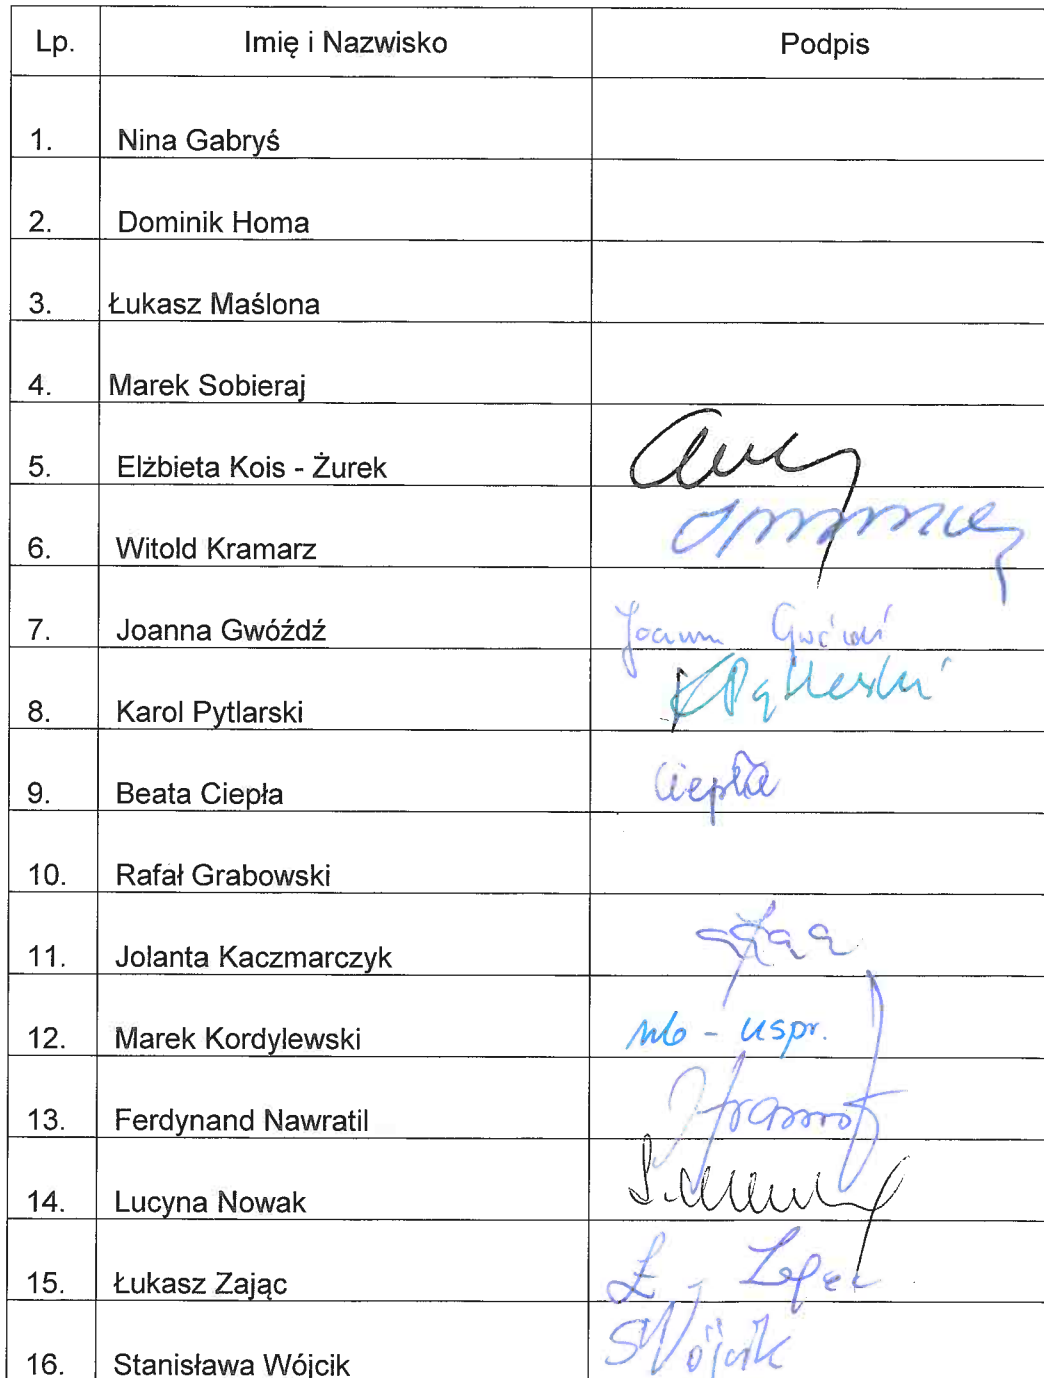 Lp. Imię i Nazwisko Podpis
1. Nina Gabryś
2. Dominik Homa
3. Łukasz Maślona
4. Marek Sobieraj
5. Elżbieta Kois - Żurek
6. Witold Kramarz
7. Joanna Gwóźdź Joanna Gwóźdź
8. Karol Pytlarski
9. Beata Ciepła Ciepła
10. Rafał Grabowski
11. Jolanta Kaczmarczyk
12. Marek Kordylewski nb - uspr.
13. Ferdynand Nawratil
14. Lucyna Nowak
15. Łukasz Zając Ł. Zając
16. Stanisława Wójcik SWójcik